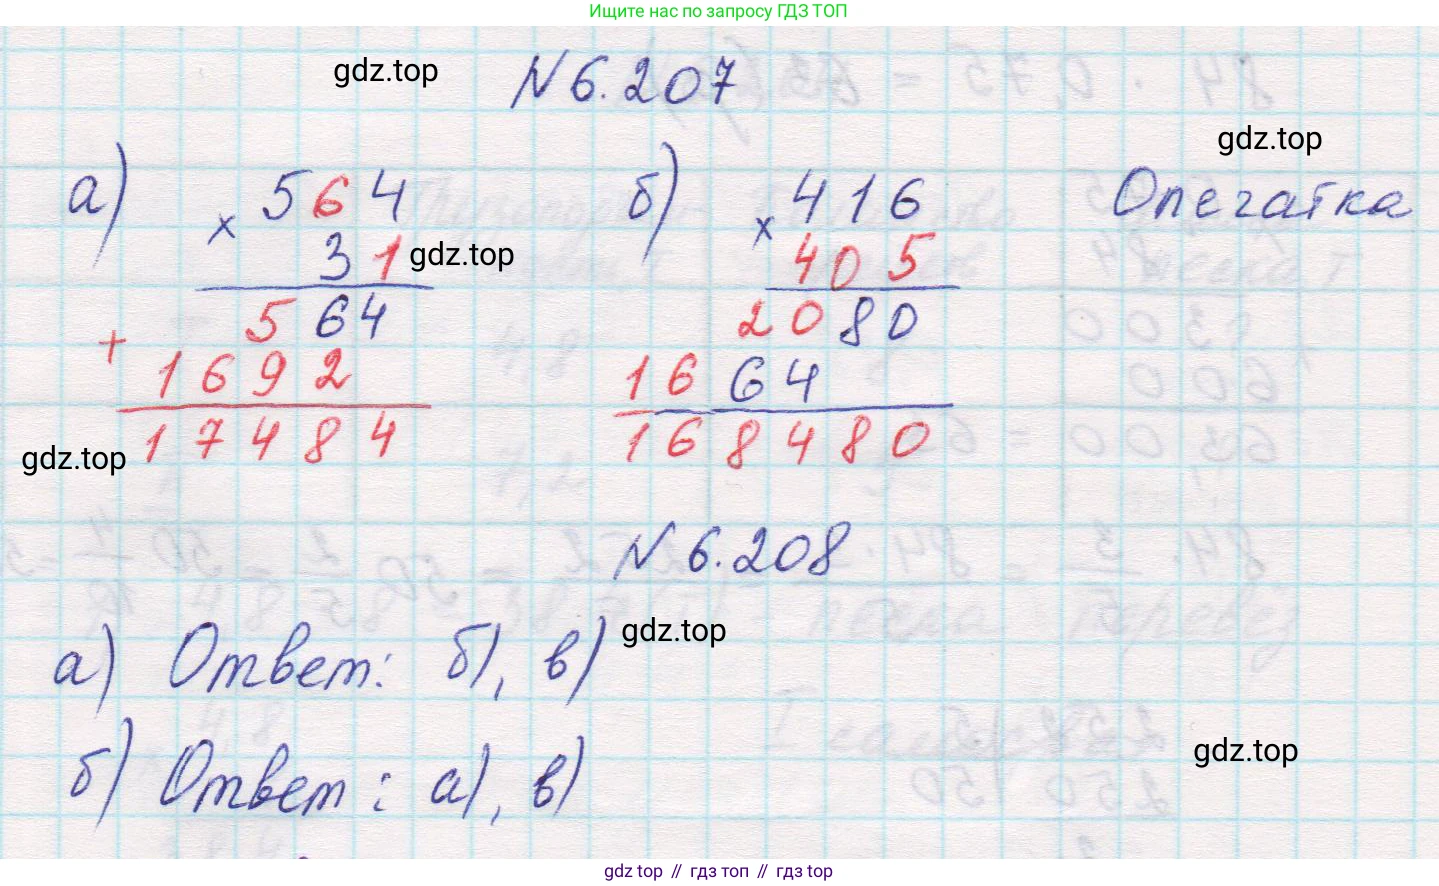 Ищите нас по запросу ГДЗ ТОП
gdz.top
N 6.207
gdz.top
а) × 564
31
gdz.top
564
+ 1692
17484
б) × 416
405
2080
1664
168480
Опечатка
gdz.top
N 6.208
а) Ответ: б), в)
gdz.top
б) Ответ: а), в)
gdz.top
gdz top // гдз топ // гдз top